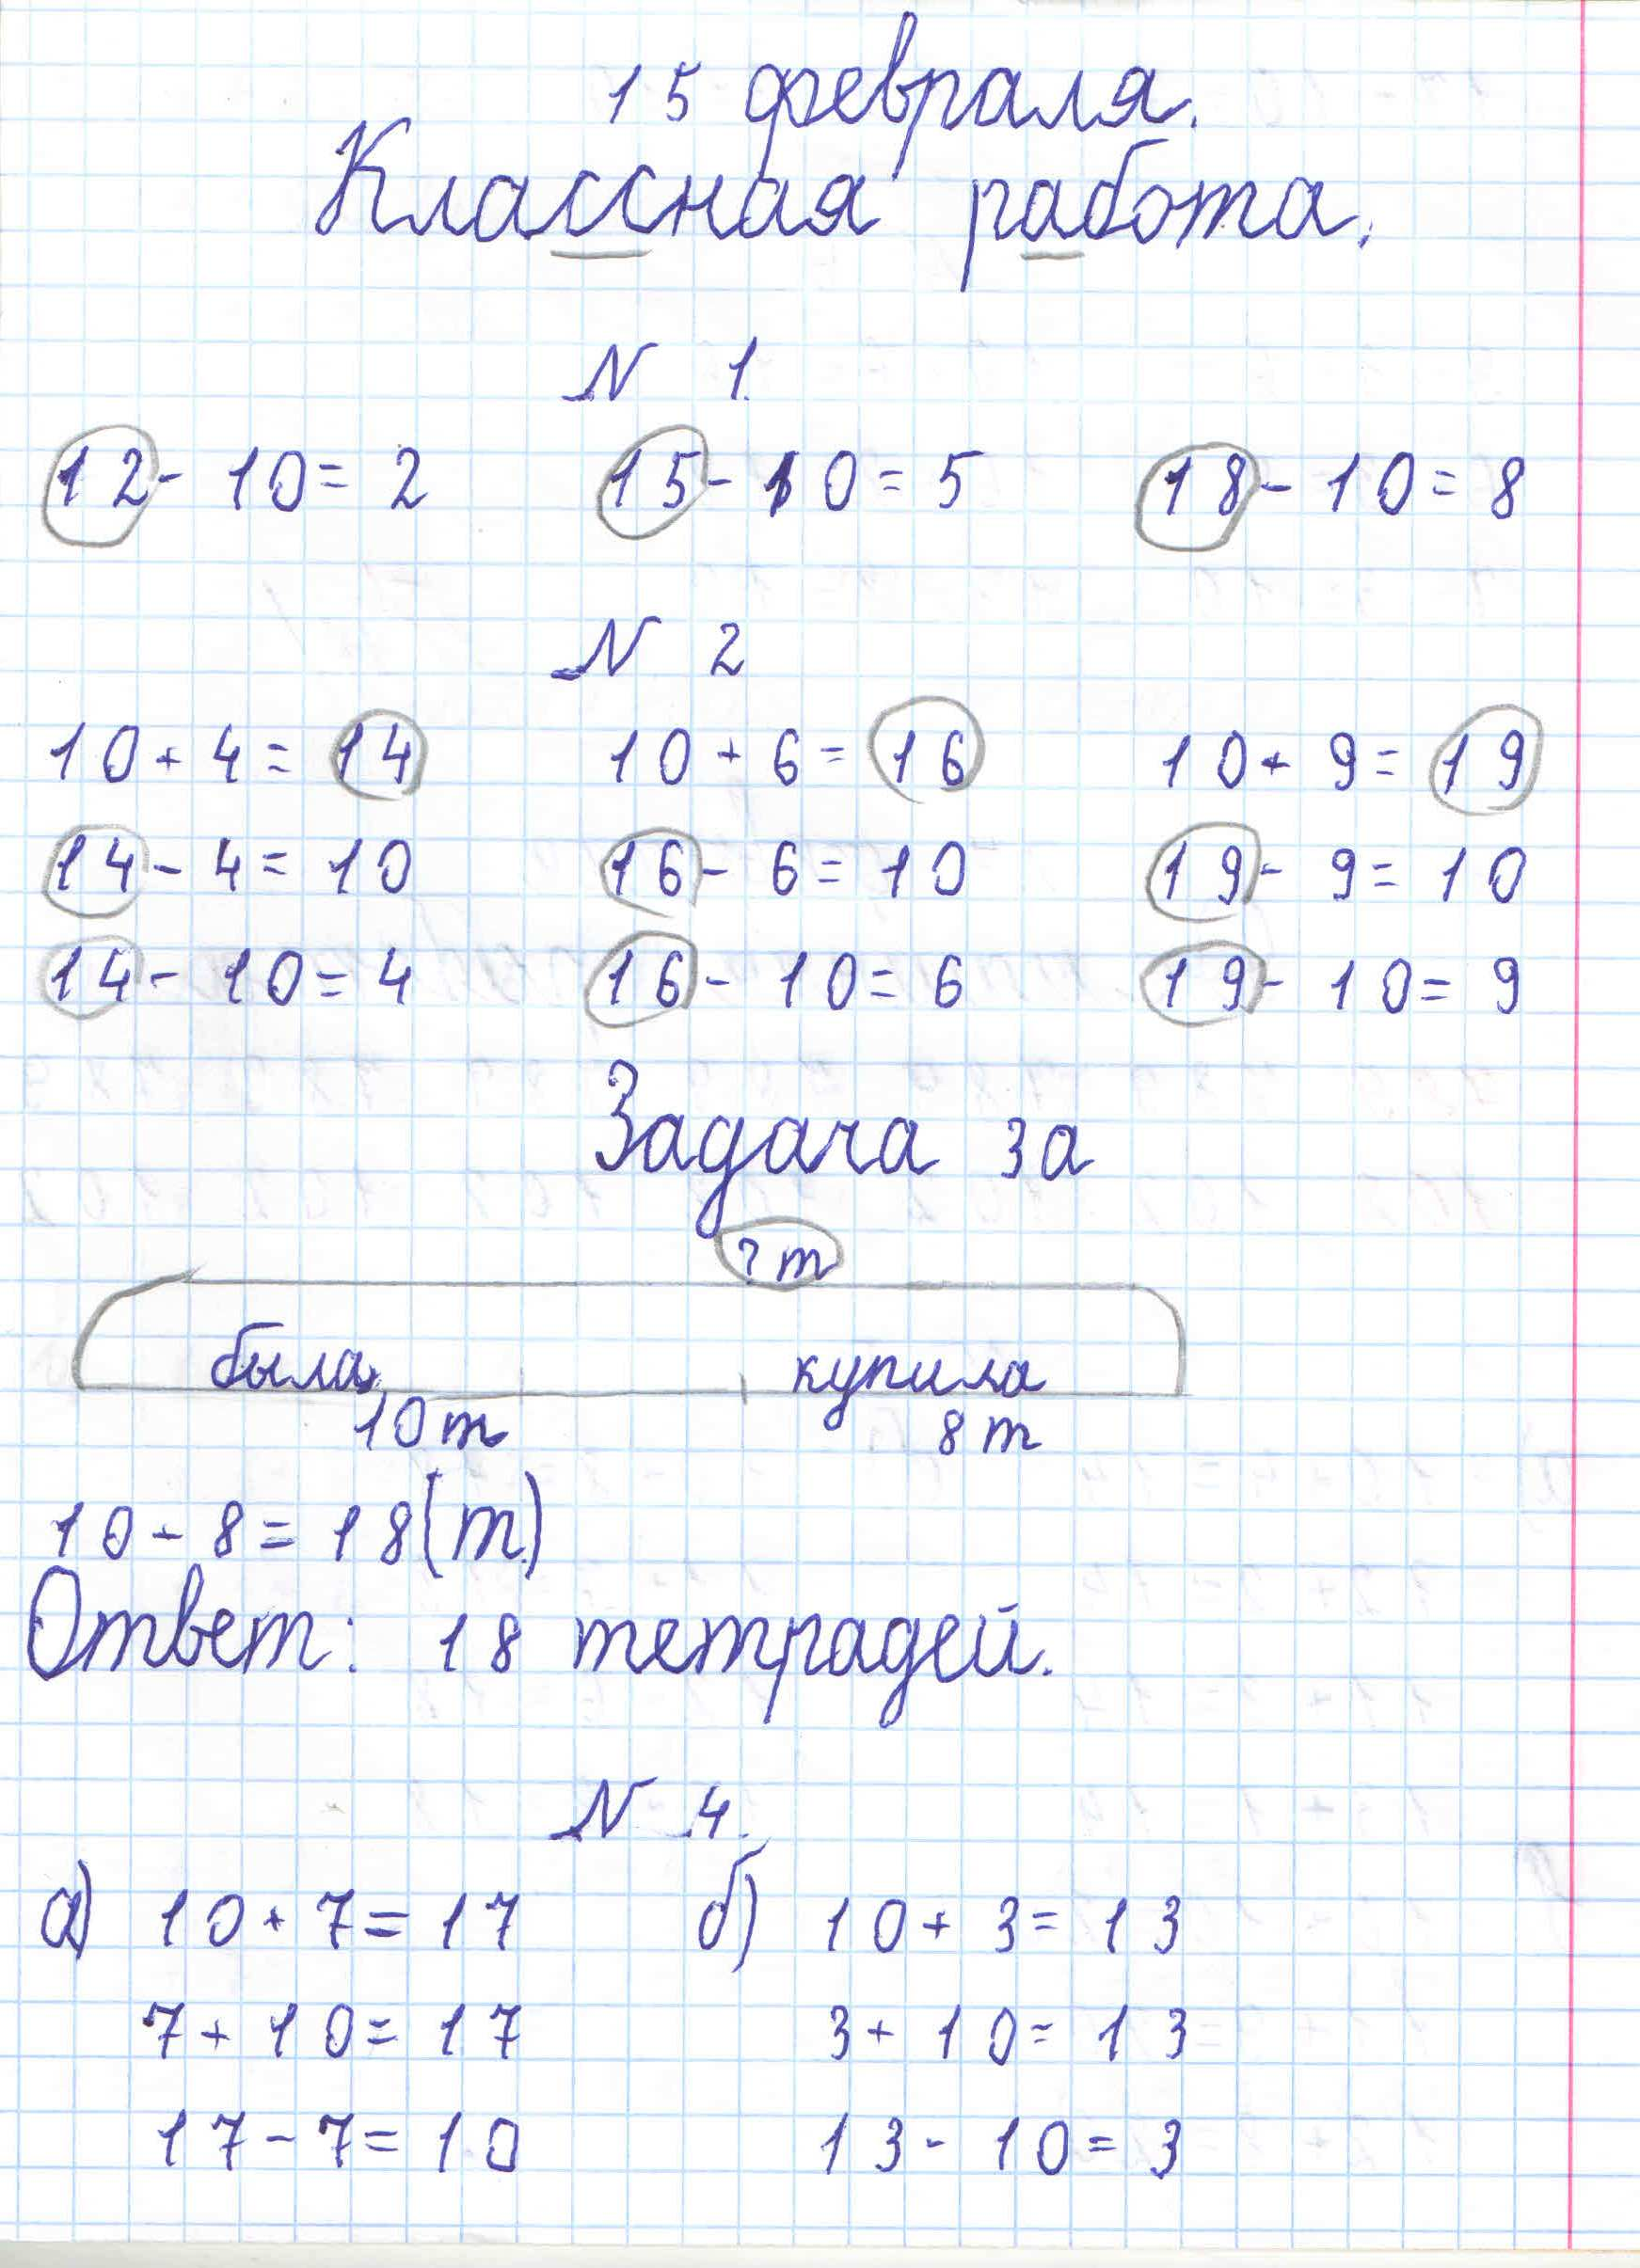 15 февраля.
Классная работа.
N 1
12 - 10 = 2 15 - 10 = 5 18 - 10 = 8
N 2
10 + 4 = 14 10 + 6 = 16 10 + 9 = 19
14 - 4 = 10 16 - 6 = 10 19 - 9 = 10
14 - 10 = 4 16 - 10 = 6 19 - 10 = 9
Задача 3а
? т
была купила
10 т 8 т
10 - 8 = 18 (т)
Ответ: 18 тетрадей.
N 4
а) 10 + 7 = 17 б) 10 + 3 = 13
7 + 10 = 17 3 + 10 = 13
17 - 7 = 10 13 - 10 = 3